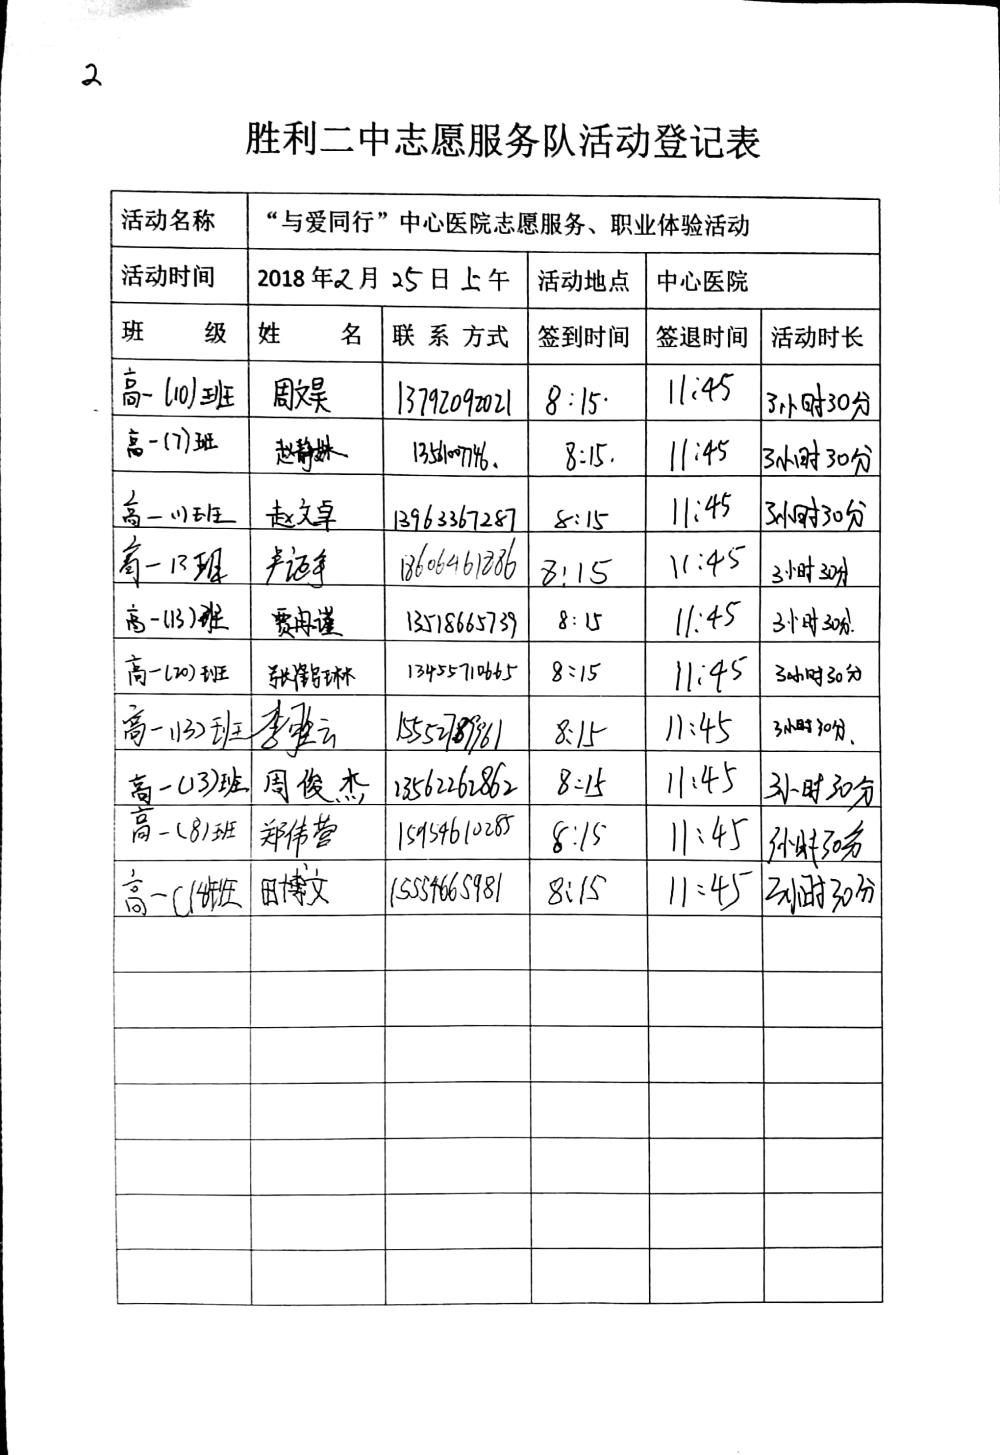 2
胜利二中志愿服务队活动登记表
活动名称 “与爱同行”中心医院志愿服务、职业体验活动
活动时间 2018年2月25日上午 活动地点 中心医院
班 级 姓 名 联系方式 签到时间 签退时间 活动时长
高一(10)班 周文昊 13792092021 8:15. 11:45 3小时30分
高一(7)班 赵静姝 8:15. 11:45 3小时30分
高一 班 赵文卓 13963367287 8:15 11:45 3小时30分
高一13班 18606461286 8:15 11:45 3小时30分
高一(13)班 贾冉谨 13518665739 8:15 11:45 3小时30分.
高一(20)班 13455710665 8:15 11:45 3小时30分
高一(13)班 李雅云 8:15 11:45 3小时30分、
高一(13)班 周俊杰 13562262862 8:15 11:45 3小时30分
高一(8)班 郑伟萱 15954610285 8:15 11:45 3小时30分
高一(14)班 田博文 15554665981 8:15 11:45 3小时30分